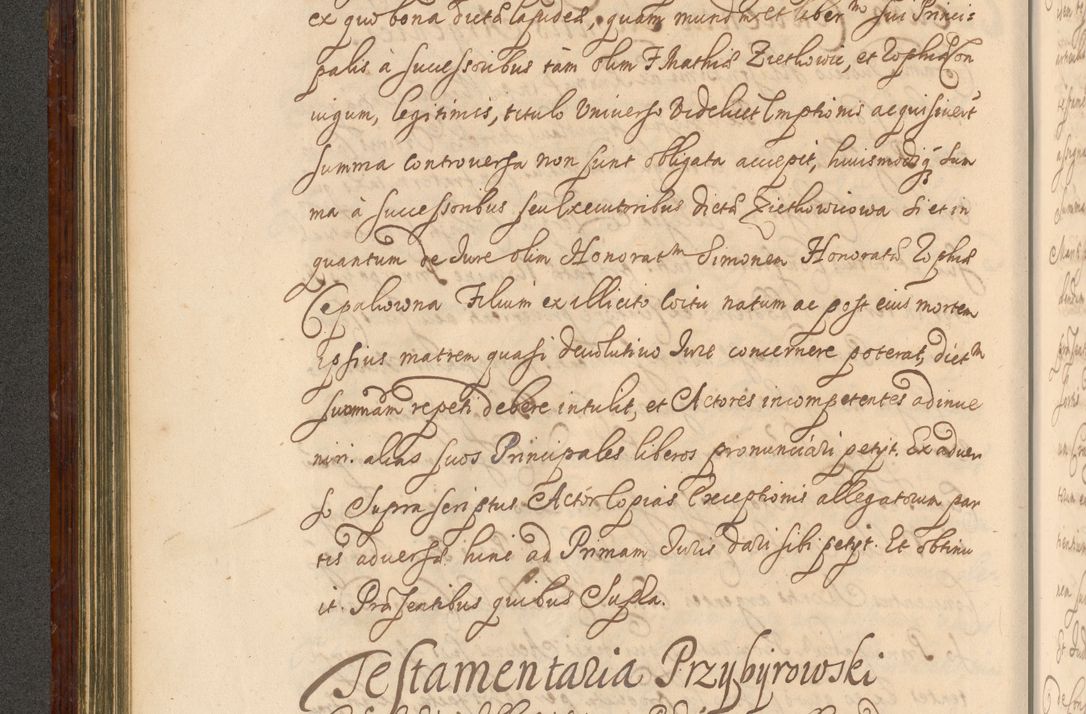 ex quo bona dicta lapidea, quam mundm et liberm sui Princi=
palis à successoribus tàm olim F. Mathiæ Zietkowic, et Zophiæ Con
iugum, legitimis, titulo Universo videlicet Emptionis acquisivert
summa controversa non sunt obligata accepit, huiusmodiq Sum
ma à successoribus seu Executoribus dictæ Zietkowicowa si et in
quantum de Jure olim Honoratm Simonem Honoratæ Zophiæ
Cepakowna Filium ex illicito Coitu natum ac post eius mortem
ipsius matrem quasi devolutivo Jure concernere poterat, dictm
summam repeti debere intulit, et Actores incompetentes adinve
niri. alias suos Principales liberos pronunciari petijt. Ex adver
so Supra scriptus Actor Copias Exceptionis allegatorum par
tis adversæ hinc ad Primam Juris dari sibi petijt. Et obtinu
it. Præsentibus quibus Supra.
Testamentaria Przybyrowski